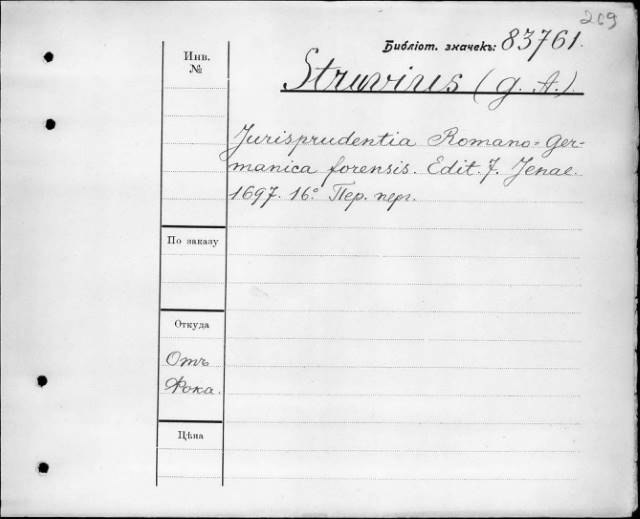 269
Библіот. значекъ: 83761.
Инв.
№
Struvius (G. A.)
Jurisprudentia Romano-Ger-
manica forensis. Edit. 7. Jenae.
1697. 16° Пер. перг.
По заказу
Откуда
Отъ
Фока.
Цѣна